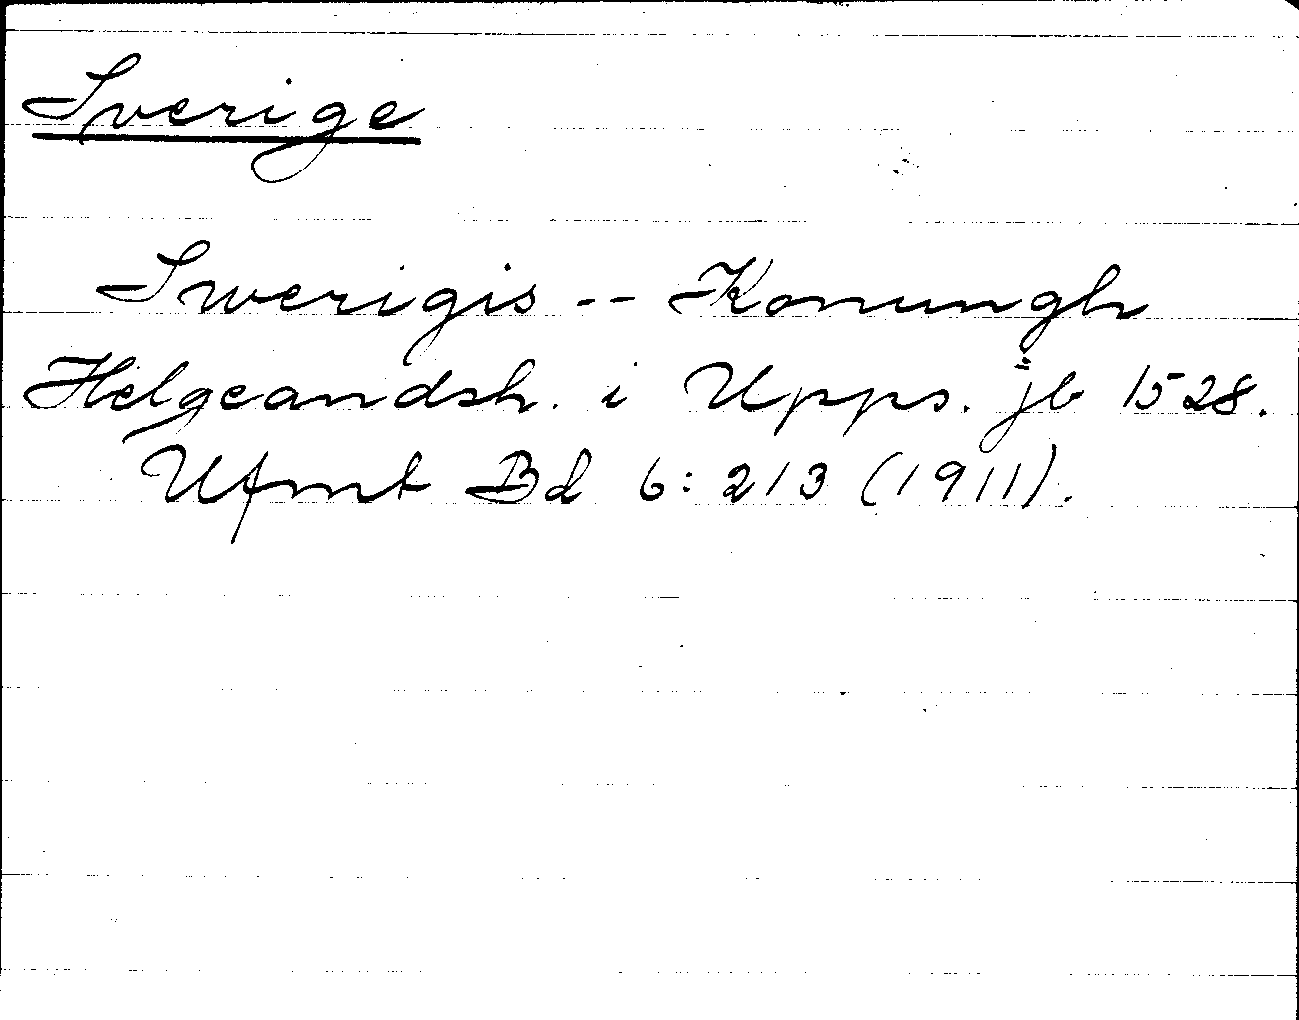 Sverige
Swerigis -- Konungh
Helgeandsh. i Upps. jb 1528.
Ufmt Bd 6:213 (1911).